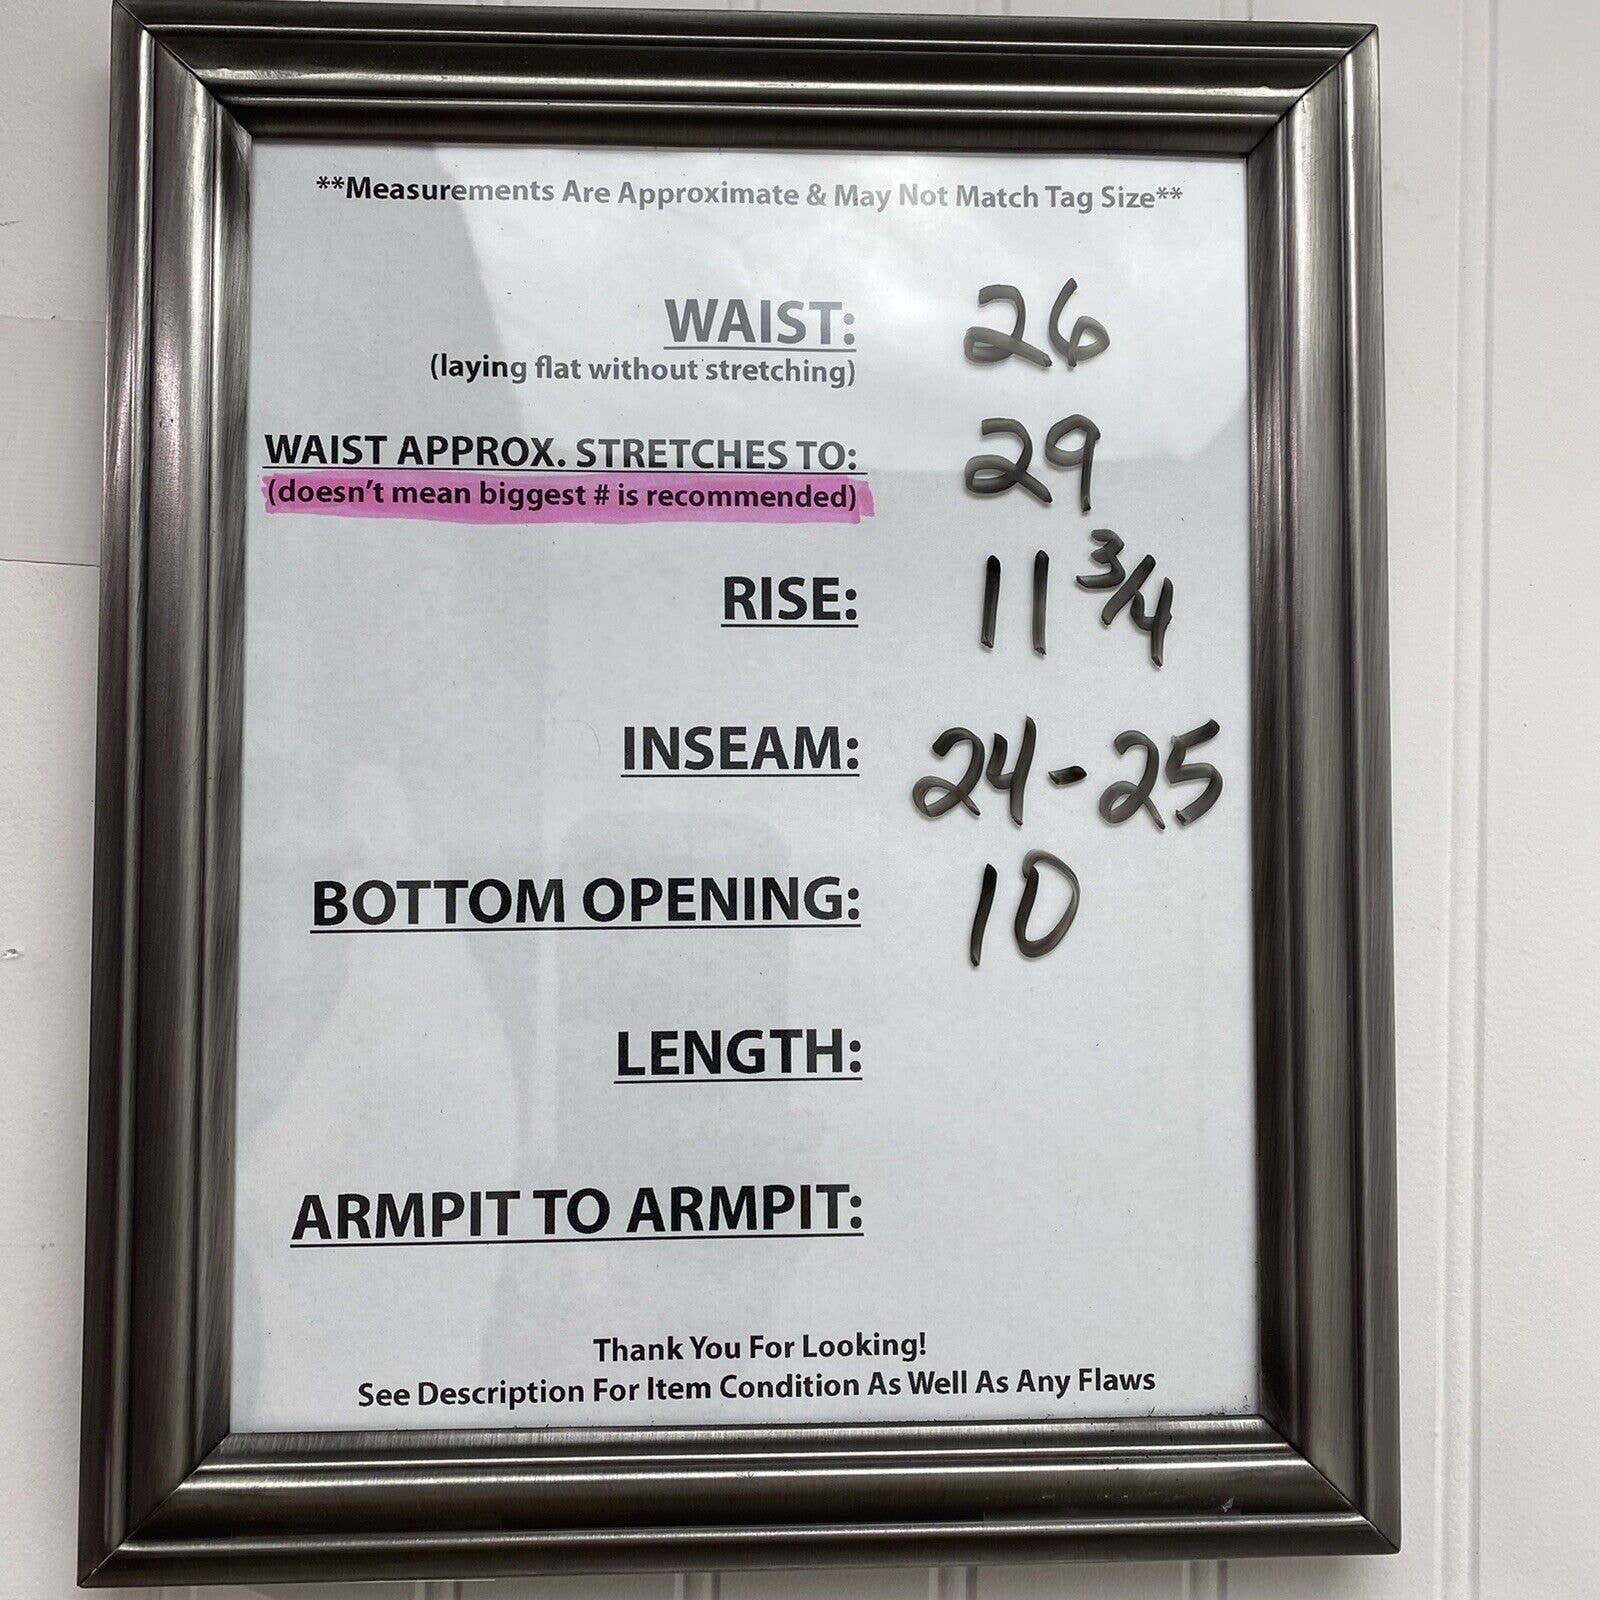 **Measurements Are Approximate & May Not Match Tag Size**
WAIST: 26
(laying flat without stretching)
WAIST APPROX. STRETCHES TO: 29
(doesn't mean biggest # is recommended)
RISE: 11 3/4
INSEAM: 24-25
BOTTOM OPENING: 10
LENGTH:
ARMPIT TO ARMPIT:
Thank You For Looking!
See Description For Item Condition As Well As Any Flaws